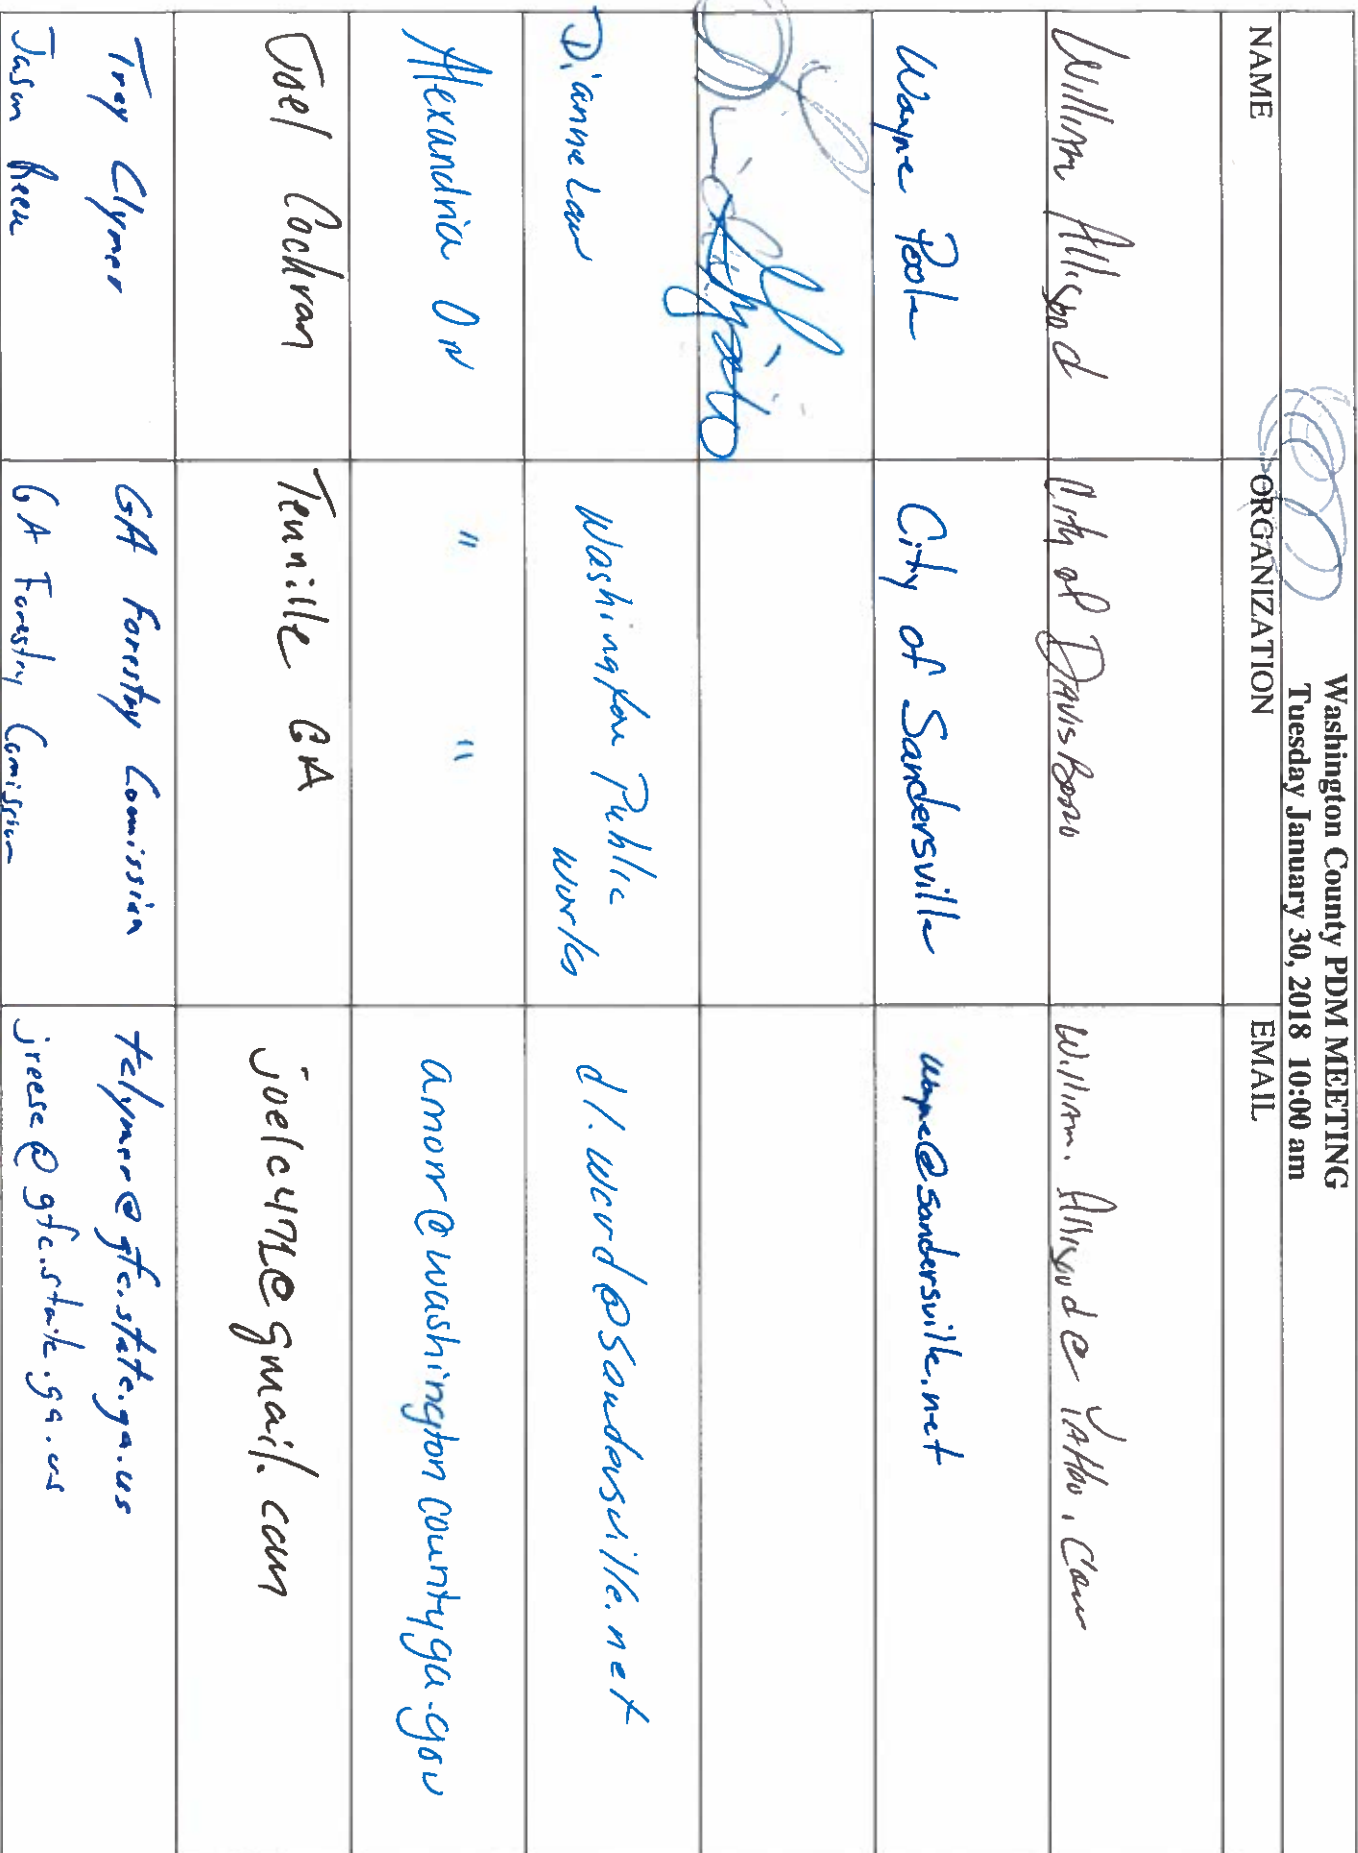 Washington County PDM MEETING
Tuesday January 30, 2018 10:00 am
NAME ORGANIZATION EMAIL
William Allisood City of DAVISBORO William.Allisood@YAHoo.Com
Wayne Poole City of Sandersville wayne@sandersville.net
Dianne Washington Public Works dl.ward@sandersville.net
Alexandria " " amorr@washingtoncountyga.gov
Joel Cochran Tennille GA joelc472@gmail.com
Troy Clymer GA Forestry Commission tclymer@gfc.state.ga.us
Jason Reese GA Forestry Comission jreese@gfc.state.ga.us